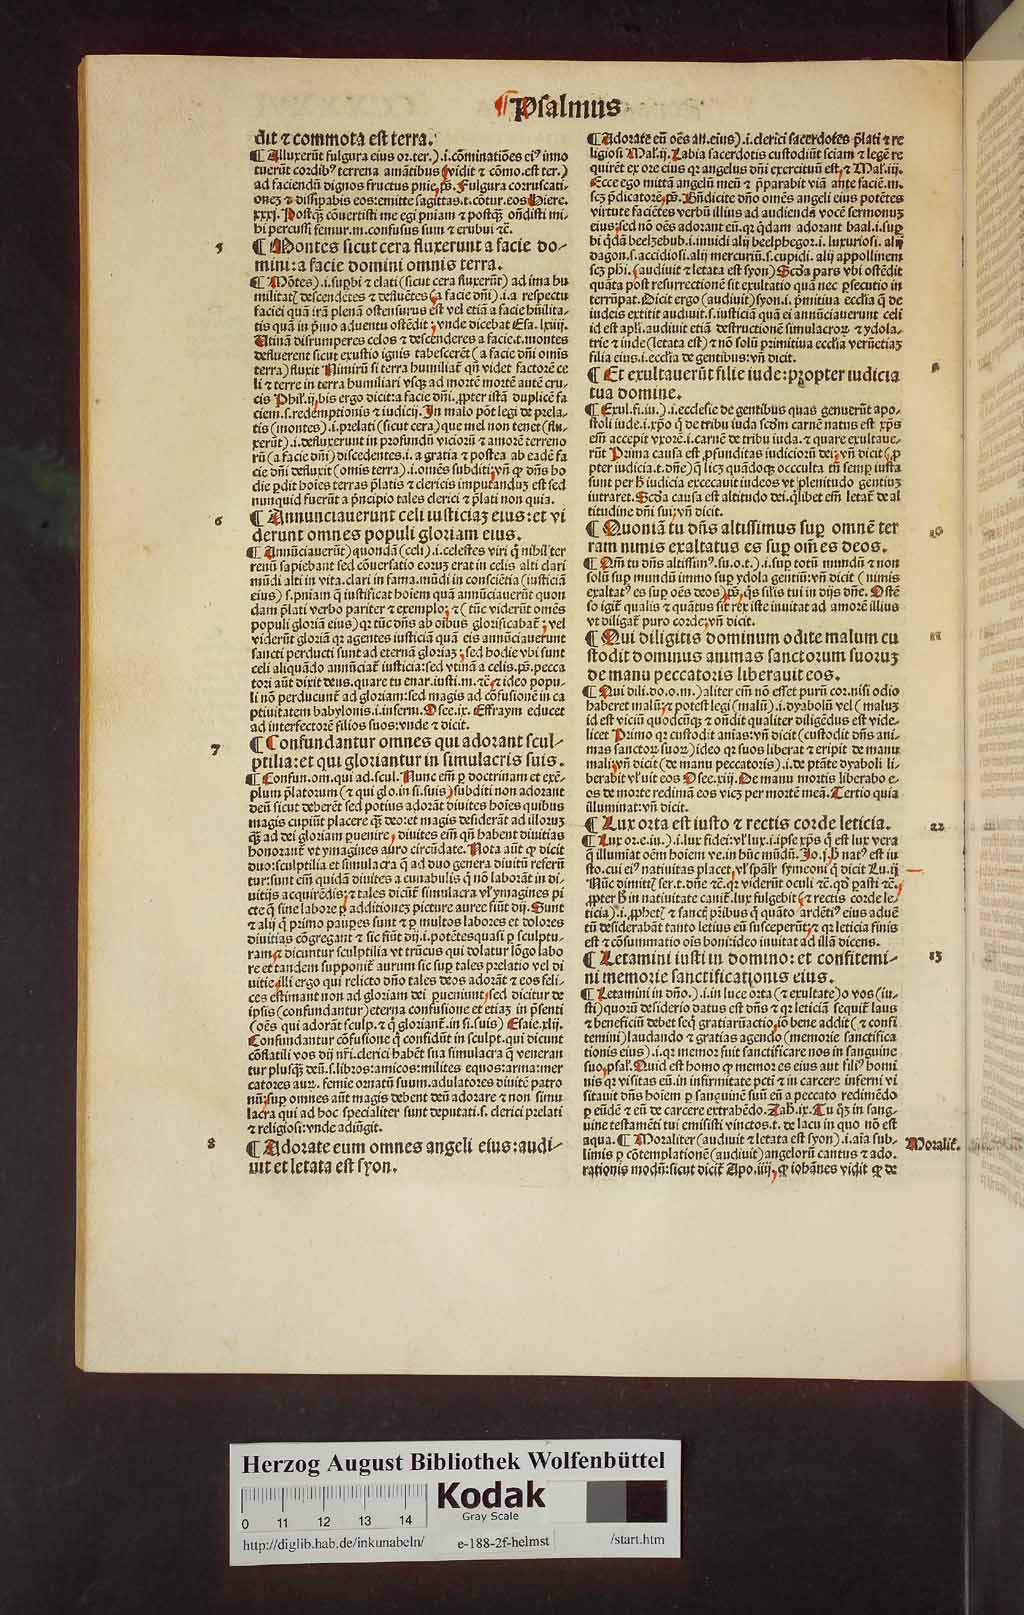 ¶ Psalmus
dit ⁊ commota est terra.
¶ Alluxerūt fulgura eius or. ter.) .i. cōminatiões eiꝰ inno
tuerūt cordibꝰ terrena amātibus (vidit ⁊ cōmo. est ter.)
ad faciendū dignos fructus pnie, ps̄. Fulgura corruscati-
onez ⁊ dissipabis eos: emitte sagittas. t. cōtur. eos Hiere.
xxxj. Postqȝ cōuertisti me egi pniam ⁊ postqȝ ondisti mi-
hi percussi femur. m. confusus sum ⁊ erubui ⁊c̄.
5 ¶ Montes sicut cera fluxerunt a facie do-
mini: a facie domini omnis terra.
¶ Mōtes) .i. supbi ⁊ elati (sicut cera fluxerūt) ad ima hu
militatꝭ descendētes ⁊ defluētes (a facie dn̄i) .i. a respectu
faciei quā irā plenā ostensurus est vel etiā a facie hūilita-
tis quā in pmo aduentu ostēdit; vnde dicebat Esa. lxiiij.
Utinā disrumperes celos ⁊ descenderes a facie. t. montes
defluerent sicut exustio ignis tabescerēt (a facie dn̄i omīs
terra) fluxit Nimirū si terra humiliat qn̄ videt factorē ce
li ⁊ terre in terra humiliari vsqȝ ad mortē mortē autē cru-
cis Phil. ij, bis ergo dicit: a facie dn̄i, ꝓpter istā duplicē fa
ciem. s. redēptionis ⁊ iudicij. In malo pōt legi de prela-
tis (montes) .i. prelati (sicut cera) que mel non tenet (flu-
xerūt) .i. defluxerunt in profundū viciorū ⁊ amorē terreno
rū (a facie dn̄i) discedentes .i. a gratia ⁊ postea ab eadē fa
cie dn̄i defluxit (omīs terra) .i. omēs subditi; vn̄ ꝙ dn̄s ho
die pdit hoies terras platis ⁊ clericis imputandū est sed
nunquid fuerūt a pncipio tales clerici ⁊ plati non quia.
6 ¶ Annunciauerunt celi iusticiaȝ eius: et vi
derunt omnes populi gloriam eius.
¶ Annūciauerūt) quondā (celi) .i. celestes viri q̄ nihil ter
renū sapiebant sed cōuersatio eoruȝ erat in celis alti dari
mūdi alti in vita. clari in fama. mūdi in consciētia (iusticiā
eius) s. pniam q̄ iustificat hoiem quā annūciauerūt quon
dam plati verbo pariter ⁊ exemplo; ⁊ (tūc viderūt omēs
populi gloriā eius) qr tūc dn̄s ab oibus glorificabat; vel
viderūt gloriā qr agentes iusticiā quā eis annūciauerunt
sancti perducti sunt ad eternā gloriaȝ; sed hodie vbi sunt
celi aliquādo annūciāt iusticia: sed vtinā a celis. ps̄. pecca
tori aūt dixit deus. quare tu enar. iusti. m. ⁊c̄. ⁊ ideo popu-
li nō perducunt ad gloriam: sed magis ad cōfusionē in ca
ptiuitatem babylonis .i. inferni. Osee. ix. Effraym educet
ad interfectorē filios suos: vnde ⁊ dicit.
7 ¶ Confundantur omnes qui adorant scul-
ptilia: et qui gloriantur in simulacris suis.
¶ Confun. om. qui ad. scul. Nunc em̄ p doctrinam et exē-
plum platorum (⁊ qui glo. in si. suis) subditi non adorant
deū sicut deberēt sed potius adorāt diuites hoies quibus
magis cupiūt placere qȝ deo: et magis desiderāt ad illoruȝ
qȝ ad dei gloriam puenire, diuites em̄ qn̄ habent diuitias
honorant vt ymagines auro circūdate. Nota aūt ꝙ dicit
duo: sculptilia et simulacra q̄ ad duo genera diuitū referū
tur: sunt em̄ quidā diuites a cunabulis q̄ nō laborāt in di-
uitijs acquirēdis; ⁊ tales dicūt simulacra vl' ymagines pi
cte q̄ sine labore p additionez picture auree fiūt dij. Sunt
⁊ alij q̄ primo paupes sunt ⁊ p multos labores et dolores
diuitias cōgregant ⁊ sic fiūt dij .i. potētes quasi p sculptu-
ram; ⁊ dicuntur sculptilia vt trūcus qui dolatur lōgo labo
re et tandem supponit aurum sic sup tales prelatio vel di
uitie; illi ergo qui relicto dn̄o tales deos adorāt ⁊ eos feli-
ces estimant non ad gloriam dei pueniunt, sed dicitur de
ipsis (confundantur) eterna confusione et etiaȝ in psenti
(oēs qui adorāt sculp. ⁊ q̄ gloriant. in si. suis) Esaie. xlij.
Confundantur cōfusione q̄ confidūt in sculpt. qui dicunt
cōflatili vos dij nr̄i. clerici habēt sua simulacra q̄ veneran
tur plusqȝ deū. s. libros: amicos: milites equos: arma: mer
catores aurū. femie ornatū suum. adulatores diuitē patro
nū; sup omnes aūt magis debent deū adorare ⁊ non simu
lacra qui ad hoc specialiter sunt deputati. s. clerici prelati
⁊ religiosi: vnde adiūgit.
8 ¶ Adorate eum omnes angeli eius: audi-
uit et letata est syon.
¶ Adorate eū oēs an. eius) .i. clerici sacerdotes plati ⁊ re
ligiosi Mal'. ij. Labia sacerdotis custodiūt sciam ⁊ legē re
quirēt ex ore eius qr angelus dn̄i exercituū est, ⁊ Mal'. iij.
Ecce ego mittā angelū meū ⁊ pparabit viā ante faciē. m.
scȝ pdicatorē, ps̄. Bn̄dicite dn̄o omēs angeli eius potētes
virtute faciētes verbū illius ad audiendā vocē sermonuȝ
eius; sed nō oēs adorant eū. qr qdam adorant baal .i. sup
bi qdā beelzebub .i. inuidi alij beelphegor .i. luxuriosi. alij
dagon. s. accidiosi. alij mercuriū. s. cupidi. alij appollinem
scȝ phi. (audiuit ⁊ letata est syon) Scda pars vbi ostēdit
quāta post resurrectionē sit exultatio quā nec psecutio in
terrūpat. Dicit ergo (audiuit) syon .i. pmitiua ecclia q̄ de
iudeis extitit audiuit. s. iusticiā quā ei annūciauerunt celi
id est apli. audiuit etiā destructionē simulacroꝝ ⁊ ydola-
trie ⁊ inde (letata est) ⁊ nō solū pmitiua ecclia verūetiaȝ
filia eius .i. ecclia de gentibus: vn̄ dicit.
¶ Et exultauerūt filie iude: propter iudicia
tua domine.
¶ Exul. fi. iu.) .i. ecclesie de gentibus quas genuerūt apo-
stoli iude .i. xpo q̄ de tribu iuda scdm carnē natus est xps
em̄ accepit vxorē .i. carnē de tribu iuda. ⁊ quare exultaue-
rūt Prima causa est ꝓfunditas iudiciorū dei; vn̄ dicit (ꝓ
pter iudicia. t. dn̄e) q̄ licȝ quādoqȝ occculta tn̄ semp iusta
sunt per h̄ iudicia excecauit iudeos vt plenitudo gentiuȝ
intraret. Scda causa est altitudo dei. qlibet em̄ letat de al
titudine dn̄i sui; vn̄ dicit.
¶ Quoniā tu dn̄s altissimus sup omnē ter
ram nimis exaltatus es sup om̄es deos.
¶ Qm̄ tu dn̄s altissimꝰ. su. o. t.) .i. sup totū mundū ⁊ non
solū sup mundū immo sup ydola gentiū: vn̄ dicit (nimis
exaltatꝰ es sup oēs deos) ps̄. qis silis tui in dijs dn̄e. Ostē
so igit qualis ⁊ quātus sit rex iste inuitat ad amorē illius
vt diligat puro corde; vn̄ dicit.
11 ¶ Qui diligitis dominum odite malum cu
stodit dominus animas sanctorum suoruȝ
de manu peccatoris liberauit eos.
¶ Qui dili. do. o. m.) aliter em̄ nō esset purū cor. nisi odio
haberet malū; ⁊ potest legi (malū) .i. dyabolū vel (maluȝ
id est viciū quodcūqȝ ⁊ ondit qualiter diligēdus est vide-
licet Primo qr custodit aniās: vn̄ dicit (custodit dn̄s ani-
mas sanctoꝝ suoꝝ) ideo qr suos liberat ⁊ eripit de manu
mali; vn̄ dicit (de manu peccatoris) .i. de ptāte dyaboli li-
berabit vl' uit eos Osee. xiij. De manu mortis liberabo e-
os de morte redimā eos vicȝ per mortē meā. Tertio quia
illuminat: vn̄ dicit.
¶ Lux orta est iusto ⁊ rectis corde leticia. 12
¶ Lux or. e. iu.) .i. lux fidei: vl' lux .i. ipse xps q̄ est lux vera
q̄ illumiat oēm hoiem ve. in hūc mūdū. Jo. j. h̄ natꝰ est iu
sto. cui eiꝰ natiuitas placet, vl' spālr symeoni q̄ dicit Lu. ij
Nūc dimittꝭ ser. t. dn̄e ⁊c̄. qr viderūt oculi ⁊c̄. qd pasti ⁊c̄.,
ꝓpter h̄ in natiuitate canit. lux fulgebit (⁊ rectis corde le-
ticia) .i. ꝓphetꝭ ⁊ sanctꝭ pribus q̄ quāto ardētiꝰ eius aduē
tū desiderabāt tanto letius eū susceperūt; ⁊ qr leticia finis
est ⁊ cōsummatio ois boni: ideo inuitat ad illā dicens.
¶ Letamini iusti in domino: et confitemi- 13
ni memorie sanctificationis eius.
¶ Letamini in dn̄o.) .i. in luce orta (⁊ exultate) o vos (iu-
sti) quorū desiderio datus est dn̄s ⁊ qr leticiā sequit laus
⁊ beneficiū debet seq gratiarūactio, iō bene addit (⁊ confi
temini) laudando ⁊ gratias agendo (memorie sanctifica
tionis eius) .i. qr memor fuit sanctificare nos in sanguine
suo, psal'. Quid est homo ꝙ memor es eius aut filiꝰ homi
nis qr visitas eū. in infirmitate pcti ⁊ in carcere inferni vi
sitauit dn̄s hoiem p sanguinē suū eū a peccato redimēdo
p eūdē ⁊ eū de carcere extrahēdo. Zach. ix. Tu qȝ in sang-
uine testamēti tui emisisti vinctos. t. de lacu in quo nō est
aqua. ¶ Moraliter (audiuit ⁊ letata est syon) .i. aīa sub- Moralit̄.
limis p cōtemplationē (audiuit) angelorū cantus ⁊ ado.
rationis modū: sicut dicit Apo. iiij, ꝙ iohānes vidit ꝙ de
Herzog August Bibliothek Wolfenbüttel
Kodak
Gray Scale
0 11 12 13 14
http://diglib.hab.de/inkunabeln/ e-188-2f-helmst /start.htm